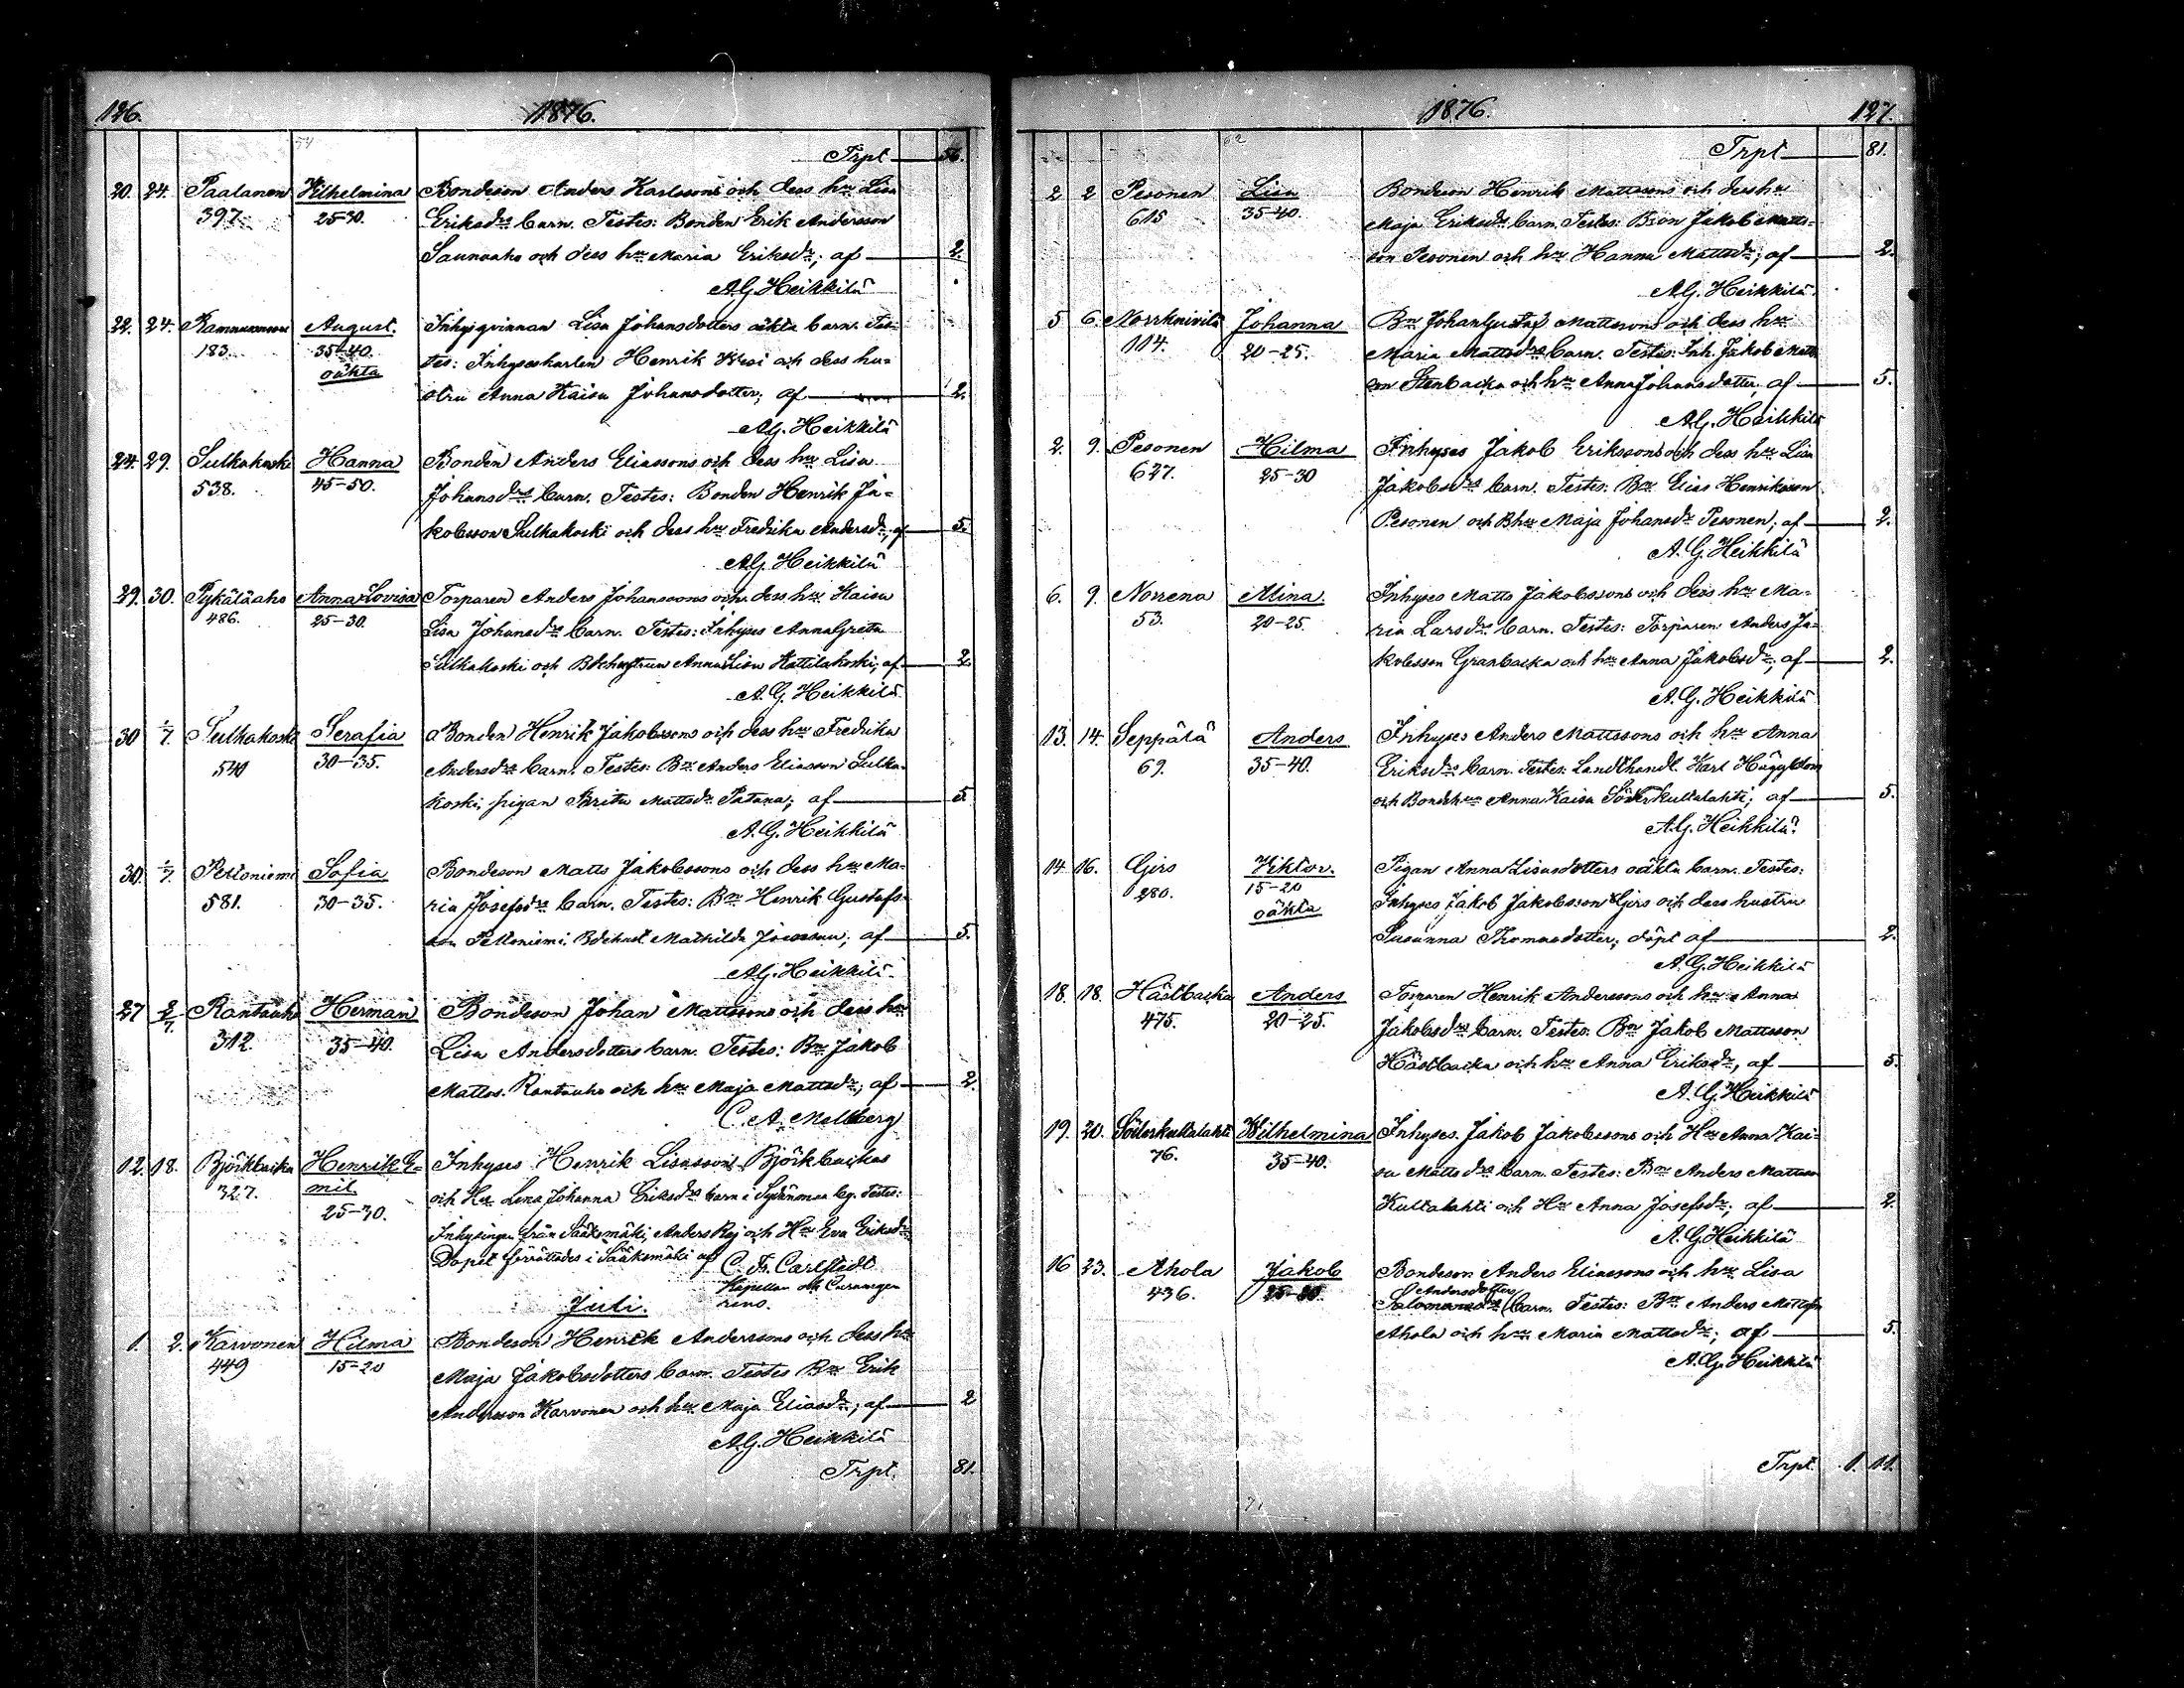 126.
1876.
Trpt 56.
20. 24. Paalanen Wilhelmina Bondeson Anders Karlssons och dess hu Lisa
397. 25-30. Eriksdrs barn. Testes: Bonden Erik Andersson
Saunaaho och dess hu Maria Eriksdr; af 2.
A.G. Heikkilä
22. 24. August. Inhysqvinnan Lisa Johansdotters oäkta barn. Tes-
183. 35-40. tes: Inhyseskarlen Henrik och dess hu-
oäkta
stru Anna Kaisa Johansdotter; af 2.
A.G. Heikkilä
24. 29. Sulkakoski Hanna Bonden Anders Eliassons och dess hu Lisa
538. 45-50. Johansdrs barn. Testes: Bonden Henrik Ja-
kobsson Sulkakoski och dess hu Fredrika Andersdr; af 5.
A.G. Heikkilä
29. 30. Pykäläaho Anna Lovisa Torparen Anders Johanssons och dess hu Kaisa
486. 25-30. Lisa Johansdrs barn. Testes: Inhyses Anna Greta
Sulkakoski och Anna Lisa Kattilakoski; af 2.
A.G. Heikkilä
30 1/7. Sulkakoski Serafia Bonden Henrik Jakobssons och dess hu Fredrika
540 30-35. Andersdrs barn. Testes: Bn Anders Eliasson Sulka-
koski, pigan Brita Mattsdr Patana; af 5
A.G. Heikkilä
30. 1/7. Peltoniemi Sofia Bondeson Matts Jakobssons och dess hu Ma-
581. 30-35. ria Josefsdrs barn. Testes: Bn Henrik Gustafs-
son Peltoniemi, Mathilda af 5.
A.G. Heikkilä
27 2/7. Rantaaho Herman Bondeson Johan Mattssons och dess hu
312. 35-40. Lisa Andersdotters barn. Testes: Bn Jakob
Mattss. Rantaaho och hu Maja Mattsdr; af 2.
C. A. Malmberg
12. 18. Björkbacka Henrik E- Inhyses Henrik Lisasson Björkbackas
327. mil och Hu Lena Johanna Eriksdrs barn i Sydänmaa by. Testes:
25-30. Inhysingen från Sääksmäki, Anders Rej och Hu Eva Eriksdr
Dopet förrättades i Sääksmäki af C. Fr. Carlstedt
Kapellan
Juli.
1. 2. Karvonen Hilma Bondeson Henrik Anderssons och dess hu
449 15-20 Maja Jakobsdotters barn. Testes Bn Erik
Andersson Karvonen och hu Maja Eliasdr; af 2
A.G. Heikkilä
Trpt. 81.
1876. 127.
Trpt 81.
2 2 Pesonen Lisa Bondeson Henrik Mattssons och dess hu
615 35-40. Maja Eriksdrs barn. Testes: Bson Jakob Matts-
son Pesonen och hu Hanna Mattsdr; af 2.
A.G. Heikkilä.
5 6. Norrkniivilä Johanna Bn Johan Gustaf Mattssons och dess hu
114. 20-25. Maria Mattsdrs barn. Testes: Inh. Jakob Matts-
son Stenbacka och hu Anna Johansdotter, af 5.
A.G. Heikkilä
2. 9. Pesonen Hilma Inhyses Jakob Erikssons och dess hu Lisa
627. 25-30 Jakobsdrs barn. Testes: Bn Elias Henriksson
Pesonen och Bhu Maja Johansdr Pesonen; af 2.
A.G. Heikkilä
6. 9. Norrena Alina Inhyses Matts Jakobssons och dess hu Ma-
53. 20-25. ria Larsdrs barn. Testes: Torparen Anders Ja-
kobsson Granbacka och hu Anna Jakobsdr; af 2.
A.G. Heikkilä
13. 14. Seppälä Anders Inhyses Anders Mattssons och hu Anna
69. 35-40. Eriksdrs barn. Testes: Landthandl. Karl Häggblom
och Bondehu Anna Kaisa Söderkultalahti; af 5.
A.G. Heikkilä
14 16. Girs Viktor. Pigan Anna Lisasdotters oäkta barn. Testes:
280. 15-20 Inhyses Jakob Jakobsson Girs och dess hustru
oäkta
Susanna Thomasdotter; döpt af 2.
A.G. Heikkilä
18. 18. Hästbacka Anders Torparen Henrik Anderssons och hu Anna
475. 20-25. Jakobsdrs barn. Testes: Bn Jakob Mattsson
Hästbacka och hu Anna Eriksdr, af 5.
A.G. Heikkilä
19. 20. Söderkultalahti Wilhelmina Inhyses Jakob Jakobssons och Hu Anna Kai-
76. 35-40. sa Mattsdrs barn. Testes: Bn Anders Mattsson
Kultalahti och Hu Anna Josefsdr; af 2.
A.G. Heikkilä
16 23. Ahola Jakob Bondeson Anders Eliassons och hu Lisa
Andersdotters
436. Salomonsdrs barn. Testes: Bn Anders Mattsson
Ahola och hu Maria Mattsdr; af 5.
A.G. Heikkilä
Trpt. 1. 11.